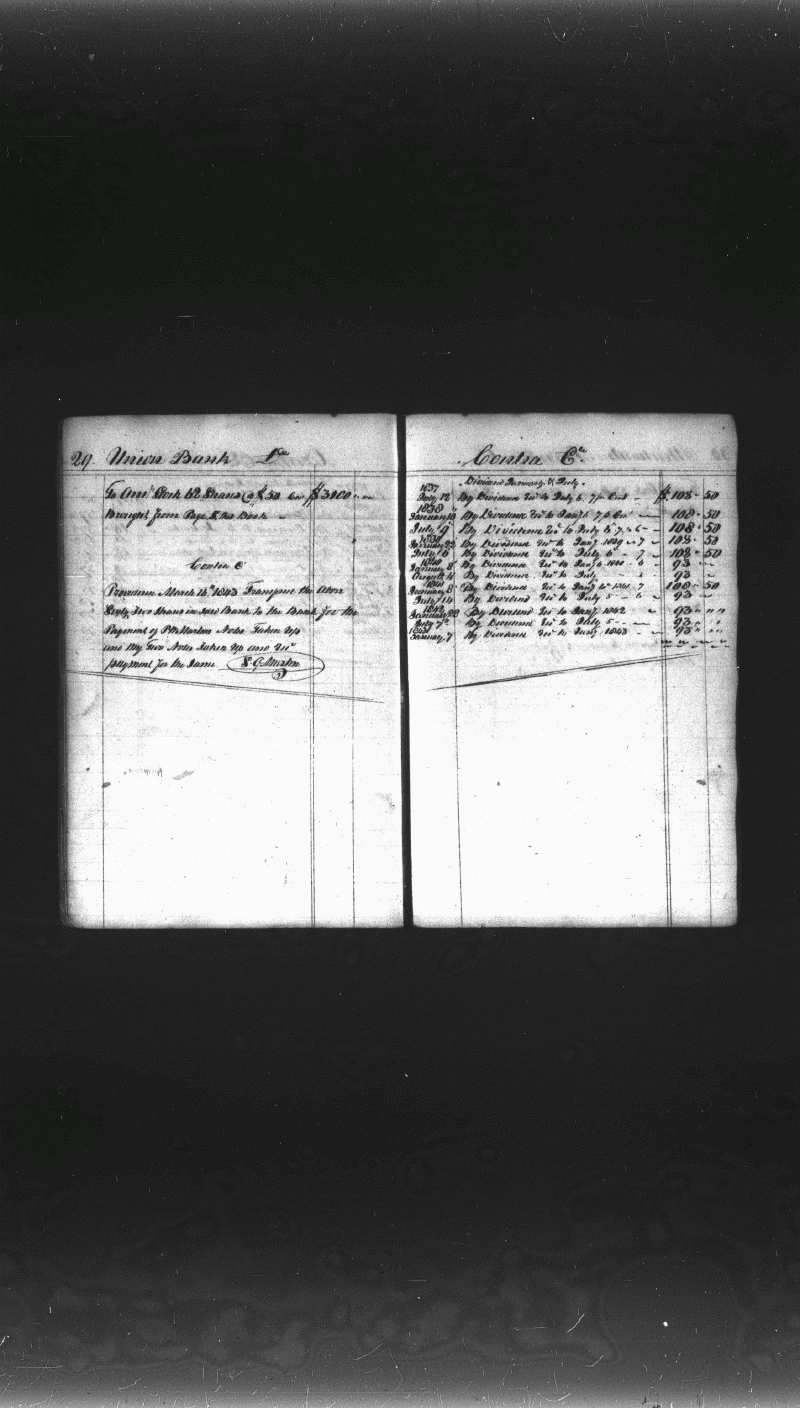 29 Union Bank Dr
To Amt Stock 62 Shares @ $50 Each $3100
Brought from Page 8 this Book
Contra Cr
Providence March 14th 1843 Transfrd the above
Sixty Two Shares in said Bank to the Bank for the
Payment of Notes Taken Up
and My Two Notes Taken Up and Recd
payment for the same S G Martin
Contra Cr
Dividend January & July
1837
July 12 By Dividend Recd to July 6 7 p Cent $108-50
1838
January 10 By Dividend Recd to Jany 6 7 p Cent 108-50
July 9 By Dividend Recd to July 6 7 108-50
1839
January 22 By Dividend Recd to Jany 1839 7 108-50
July 6 By Dividend Recd to July 6 7 108-50
1840
January 8 By Dividend Recd to Jany 6 1840 6 93
August 4 By Dividend Recd to July 93
1841
January 8 By Dividend Recd to Jany 6 1841 7 108-50
July 14 By Dividend Recd to July 5 6 93
1842
January 28 By Dividend Recd to Jany 1842 93 " "
July 7th By Dividend Recd to July 5 93 " "
1843
January 7 By Dividend Recd to Jany 1843 93 " "